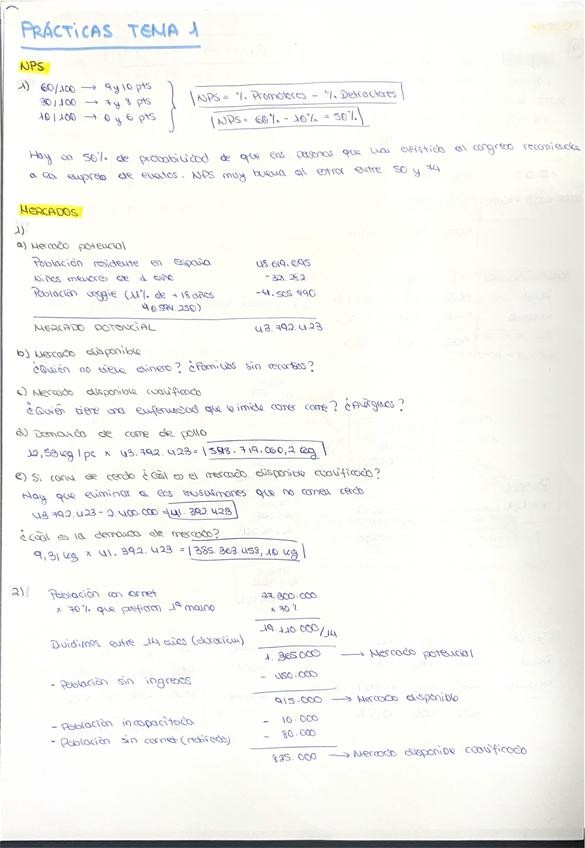 PRÁCTICAS TEMA 1
NPS
1) 60/100 → 9 y 10 pts
30/100 → 7 y 8 pts
10/100 → 0 y 6 pts
NPS = % Promotores - % Detractores
NPS = 60% - 10% = 50%
Hay un 50% de probabilidad de que las personas que han asistido al congreso recomienden
a la empresa de eventos. NPS muy buena al estar entre 50 y 74
MERCADOS
1)
a) Mercado potencial
Población residente en España
Niños menores de 1 año
Población veggie (11% de +18 años -4.505.990
MERCADO POTENCIAL 43.792.423
b) Mercado disponible
¿Quién no tiene dinero? ¿Familias sin recursos?
c) Mercado disponible cualificado
¿Quién tiene una enfermedad que le impide comer carne? ¿Alérgenos?
d) Demanda de carne de pollo
kg/pc x 43.792.423 =
e) Si carne de cerdo ¿Cuál es el mercado disponible cualificado?
Hay que eliminar a los musulmanes que no comen cerdo
43.792.423 - 2.400.000 = 41.392.423
¿Cuál es la demanda de mercado?
9,31 kg x 41.392.423 = 385.363.458,10 kg
2) Población con carnet 27.300.000
x 70% que prefieren 1ª mano x 70%
19.110.000/14
Dividimos entre 14 años (duración)
1.365.000 → Mercado potencial
- Población sin ingresos - 450.000
915.000 → Mercado disponible
- Población incapacitada - 10.000
- Población sin carnet (retirados) - 80.000
825.000 → Mercado disponible cualificado